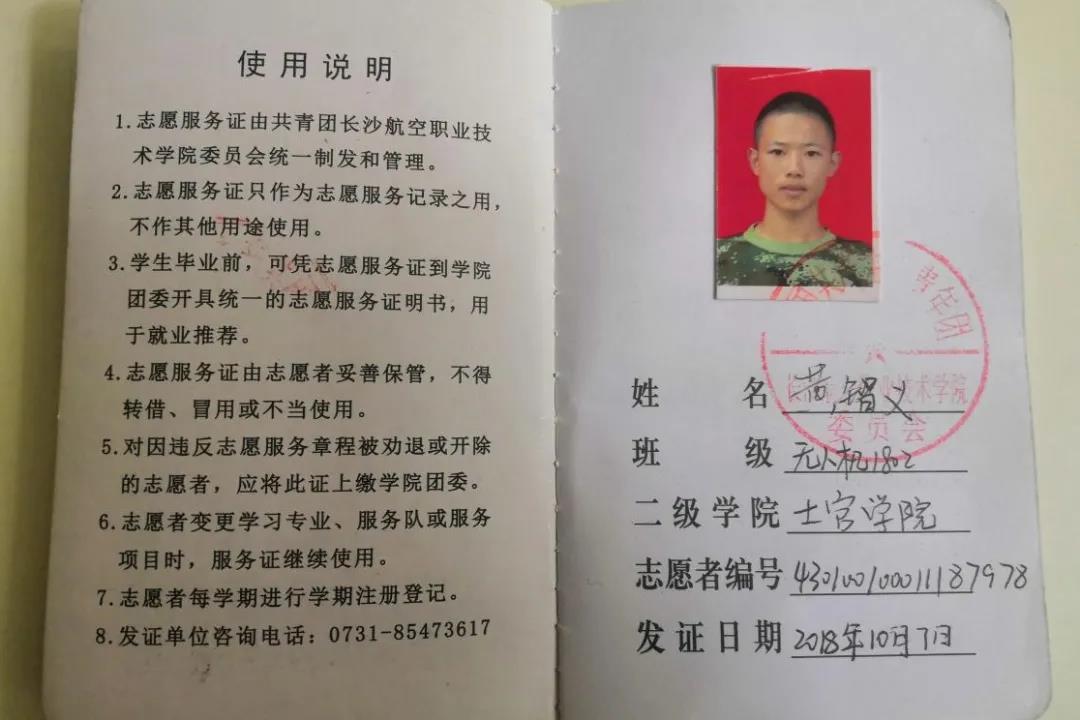 使用说明
1.志愿服务证由共青团长沙航空职业技
术学院委员会统一制发和管理。
2.志愿服务证只作为志愿服务记录之用，
不作其他用途使用。
3.学生毕业前，可凭志愿服务证到学院
团委开具统一的志愿服务证明书，用
于就业推荐。
4.志愿服务证由志愿者妥善保管，不得
转借、冒用或不当使用。
5.对因违反志愿服务章程被劝退或开除
的志愿者，应将此证上缴学院团委。
6.志愿者变更学习专业、服务队或服务
项目时，服务证继续使用。
7.志愿者每学期进行学期注册登记。
8.发证单位咨询电话：0731-85473617
青年团
业技术学院
委员会
姓名 黄智义
班级 无人机1802
二级学院 士官学院
志愿者编号 430100100011187978
发证日期 2018年10月7日